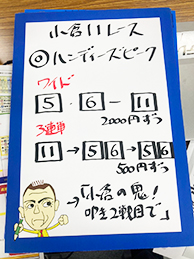 小倉11レース
◎ハンディーズピーク
ワイド
5・6-11
2000円ずつ
3連単
11→5 6→5 6
500円ずつ
→「小倉の鬼!
叩き2戦目で」